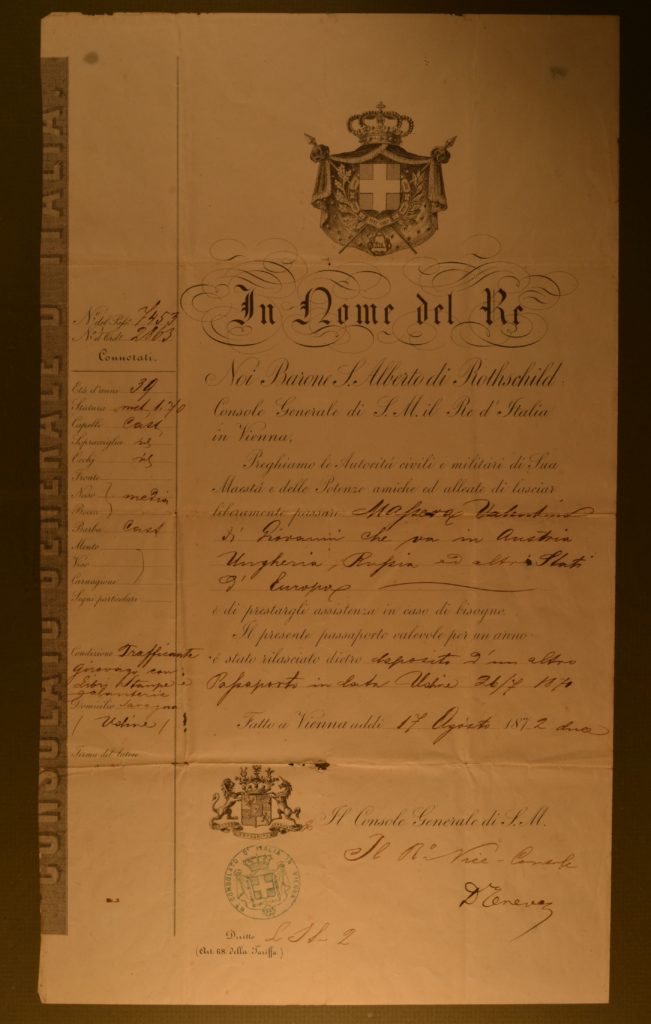 CONSOLATO GENERALE D'ITALIA.
N.º del Pass.º 7453
N.º d'Ord.e 2863
Connotati.
Età d'anni 39
Statura met. 1.70
Capelli cast
Sopracciglia id
Occhj id
Fronte
Naso medio
Bocca
Barba cast
Mento
Viso
Carnagione
Segni particolari
Condizione Trafficante
girovago con
libri stampe e
galanterie
Domicilio
(Udine)
Firma del latore
In Nome del Re
Noi Barone S. Alberto di Rothschild
Console Generale di S. M. il Re d'Italia
in Vienna,
Preghiamo le Autorità civili e militari di Sua
Maestà e delle Potenze amiche ed alleate di lasciar
liberamente passare Valentino
di Giovanni che va in Austria
Ungheria, Russia ed altri Stati
d'Europa
e di prestargli assistenza in caso di bisogno.
Il presente passaporto valevole per un anno
è stato rilasciato dietro deposito d'un altro
Passaporto in data Udine 26/7 1870
Fatto a Vienna addì 17 Agosto 1872 due
Il Console Generale di S. M.
Il Rº Vice-Console
R.º CONSOLATO D'ITALIA IN VIENNA
Diritto
(Art. 68. della Tariffa.)